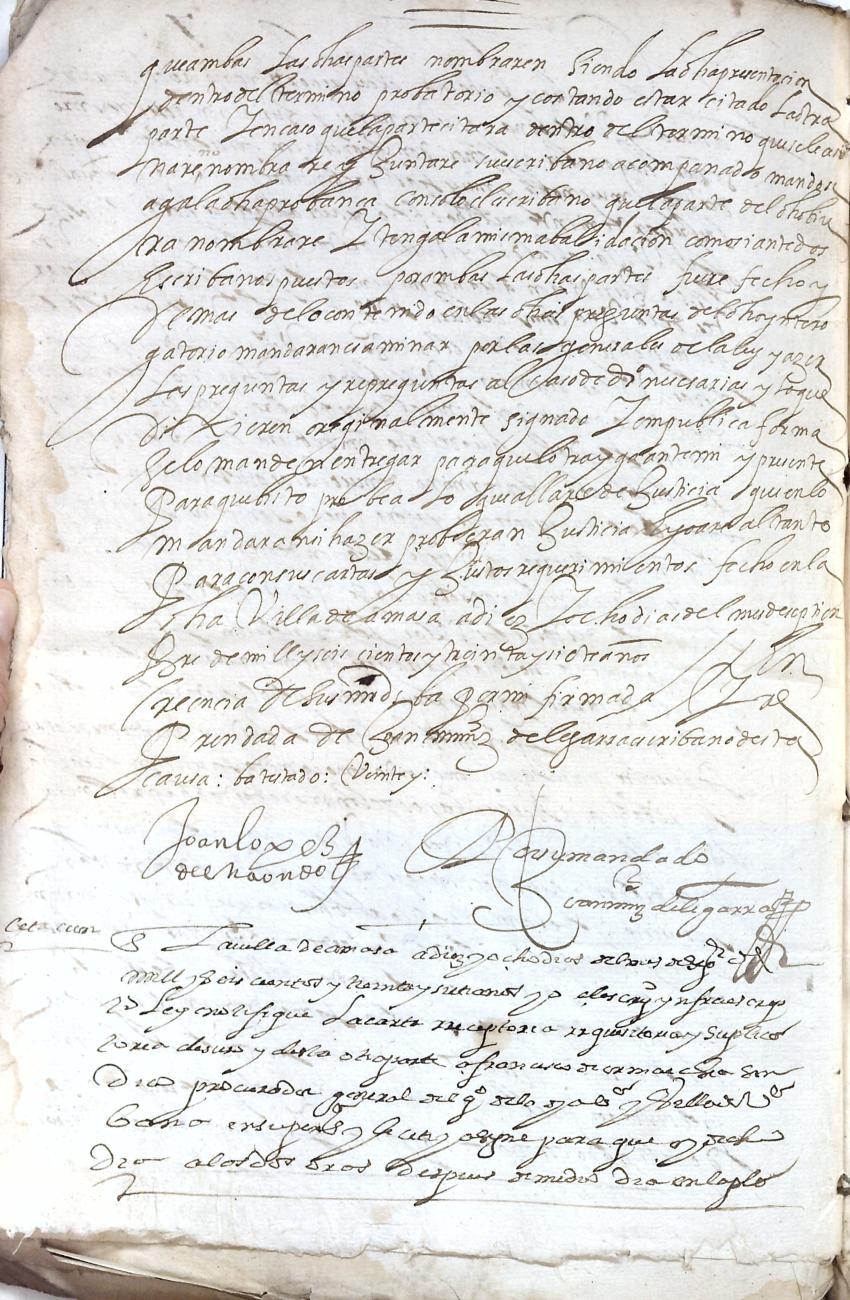 que ambas las dhas partes nombraren siendo la dha presentacion
dentro del termino probatorio y contando estar citado la otra
parte Y en caso que la parte citara dentro del termino que se le asi
nare no nombrare y Juntare su escribano acompanado mandose
aga la dha probança con solo el escribano que la parte del dho
ra nombrare Y tenga la misma balidacion como si ante dos
escribanos puestos por ambas las dhas partes fuere fecho y
demas de lo contenido en las dhas preguntas del dho yntero
gatorio mandaran esaminar por las generales de la ley y azer
las preguntas y repreguntas al caso de dro nesesarias y lo que
dixieren originalmente signado Y en publica forma
se lo manden entregar para que lo trayga ante mi y presente
Para que bisto probea lo que allare de Justicia que en lo
mandaran hazer probieran Justicia Y yo are al tanto
Para con sus cartas y Justos requerimientos fecho en la
dha Villa de amasa a diez Y ocho dias del mes de septien
bre de mill y seis cientos y treinta y siete anos
creencia de ba Y ba por mi firmada Y re
frendada de Joan de legarra escribano desta
causa: ba testado: Veinte y:
Joan Lopez
de
Por su mandado
Joan de legarra
Citacion
En La villa de amasa a diez y ocho dias del mes de
mill y seis cientos y treinta y siete anos yo el escrivano ynfraescrip
to Ley e notifique La carta receptoria requisitoria y suplica
toria desuso y desta otra parte a francisco de sin
dico procurador general del
bano en su persona y le cite y asigne para que oy dicho
dia a las dos oras despues de medio dia en la pla